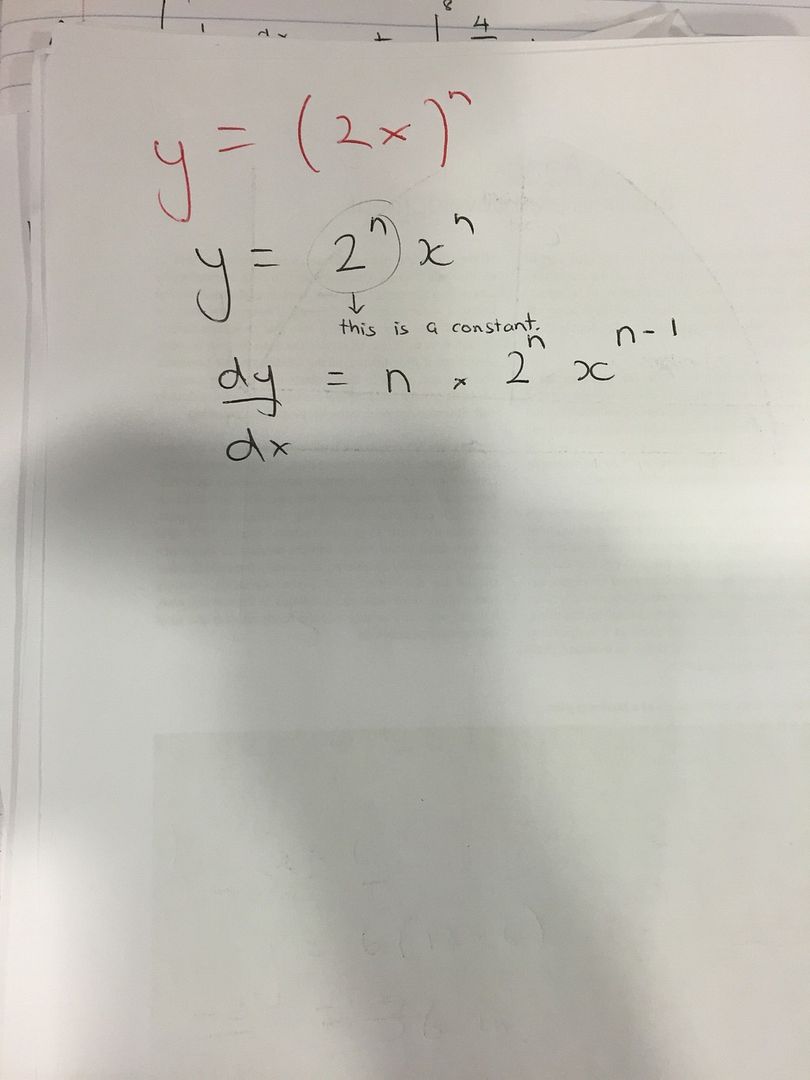 8 4
y = (2x)ⁿ
y = 2ⁿ xⁿ
↓
this is a constant.
dy/dx = n × 2ⁿ xⁿ⁻¹